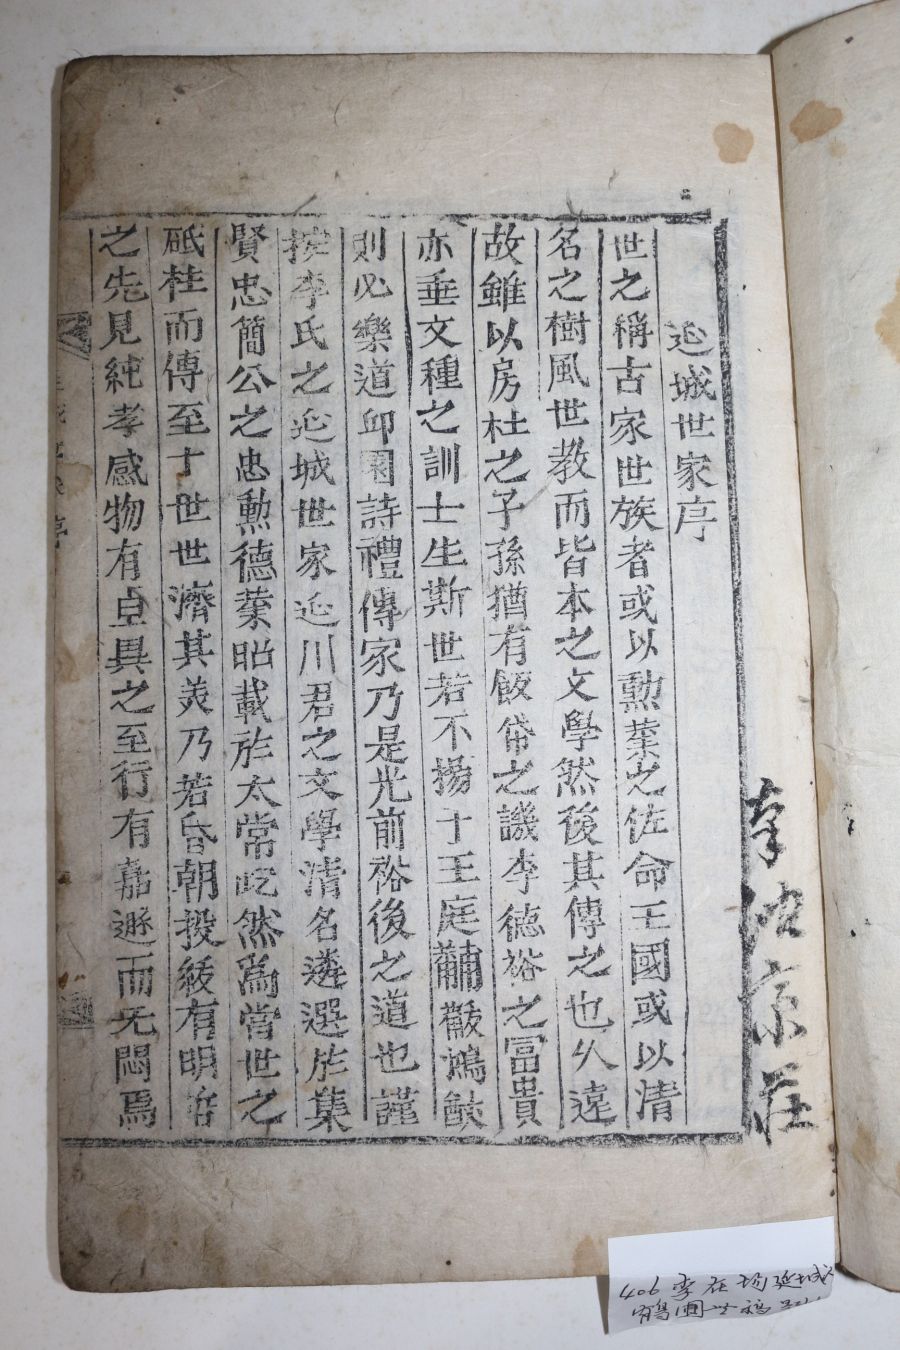 延城世家序
世之稱古家世族者或以勳業之佐命王國或以清
名之樹風世教而皆本之文學然後其傳之也久遠
故雖以房杜之子孫猶有飯帒之譏李德裕之冨貴
亦垂文種之訓士生斯世若不揚于王庭黼黻鴻猷
則必樂道邱園詩禮傳家乃是光前裕後之道也謹
按李氏之延城世家延川君之文學清名遴選於集
賢忠簡公之忠勳德業昭載於太常屹然爲當世之
砥柱而傳至十世世濟其美乃若昏朝投紱有明哲
之先見純孝感物有卓異之至行有嘉遯而无悶焉
序
莊
406 李在 延城